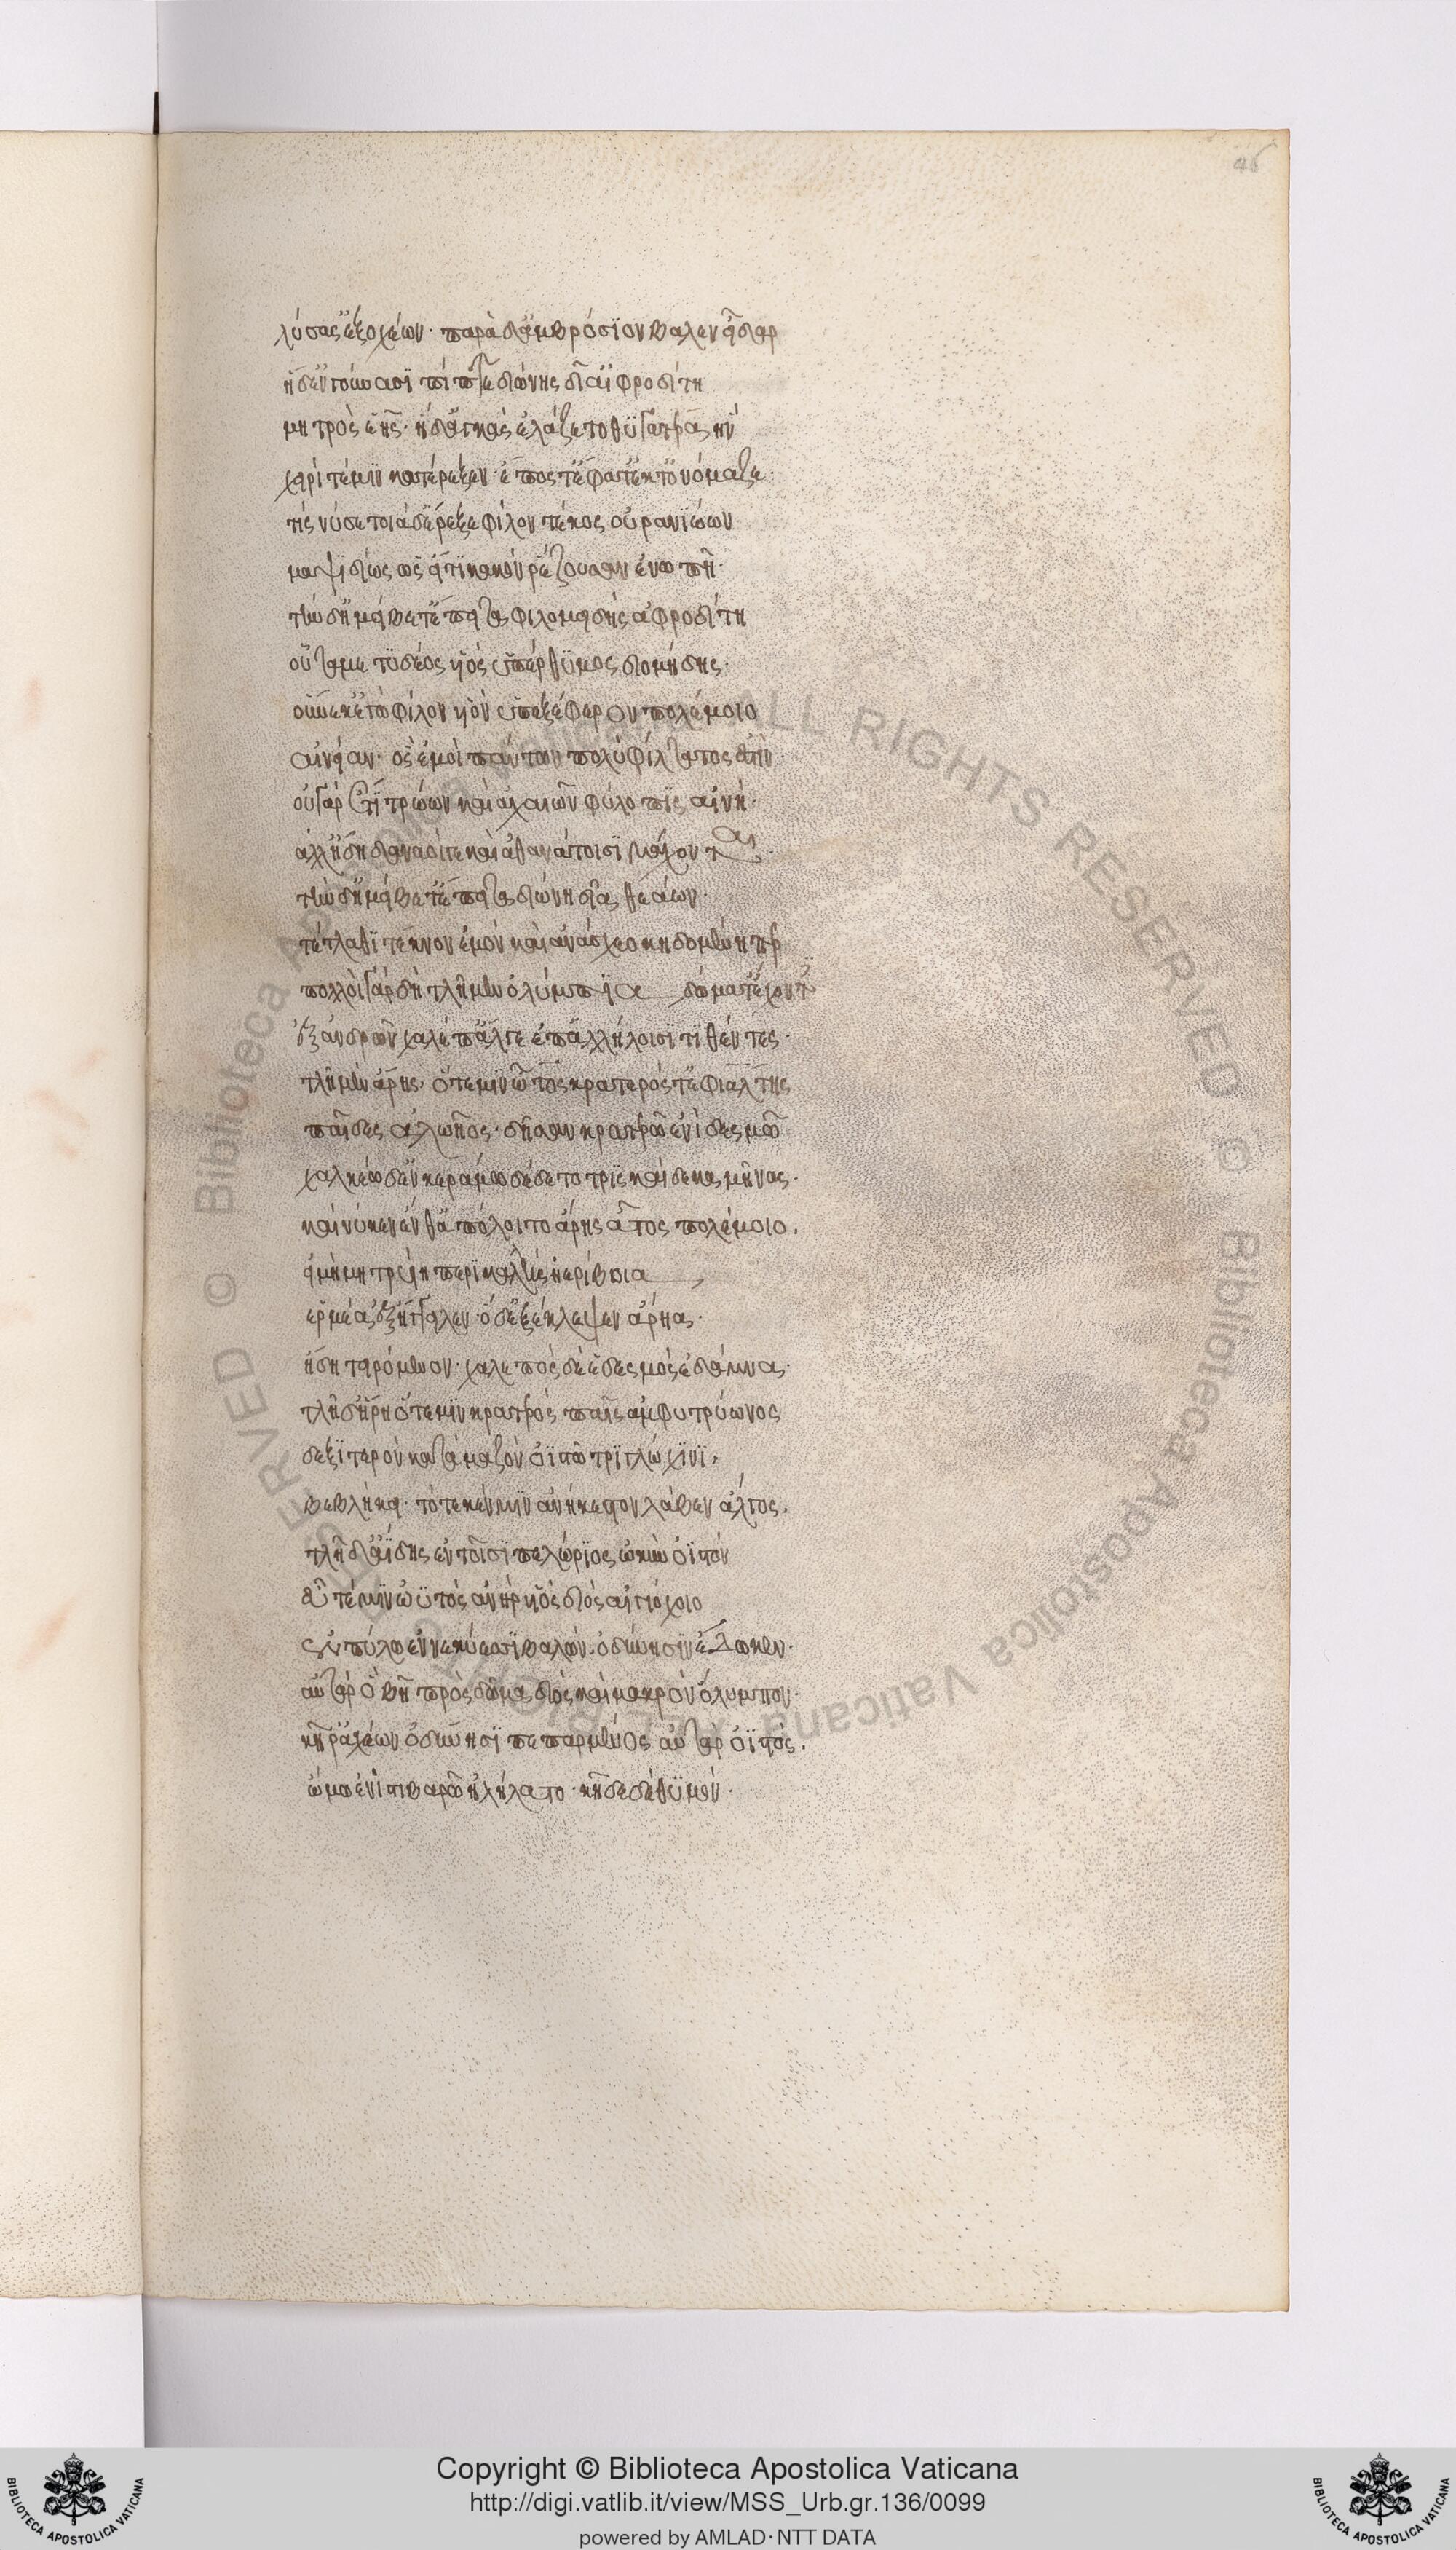 46
λύσας ἐξ ὀχέων· παρὰ δ' ἀμβρόσιον βάλεν εἶδαρ
ἡ δ' ἐν γούνασι πῖπτε διώνης δῖ' ἀφροδίτη
μητρὸς ἑῆς· ἡ δ' ἀγκὰς ἐλάζετο θυγατέρα ἥν
χειρί τέ μιν κατέρεξεν· ἔπος τ' ἔφατ' ἔκ τ' ὀνόμαζε·
τίς νύ σε τοιάδ' ἔρεξε φίλον τέκος οὐρανιώνων
μαψιδίως ὡς εἴ τι κακὸν ῥέζουσαν ἐνωπῆ·
τὴν δ' ἠμείβετ' ἔπειτα φιλομειδὴς ἀφροδίτη
οὖτά με τυδέος υἱὸς ὑπέρθυμος διομήδης·
οὕνεκ' ἐγὼ φίλον υἱὸν ὑπεξέφερον πολέμοιο
αἰνείαν· ὃς ἐμοὶ πάντων πολὺ φίλτατός ἐστιν·
οὐ γὰρ ἔτι τρώων καὶ ἀχαιῶν φύλοπις αἰνή·
ἀλλ' ἤδη δαναοί γε καὶ ἀθανάτοισι μάχονται·
τὴν δ' ἠμείβετ' ἔπειτα διώνη δῖα θεάων·
τέτλαθι τέκνον ἐμὸν καὶ ἀνάσχεο κηδομένη περ
πολλοὶ γὰρ δὴ τλῆμεν ὀλύμπια δώματ' ἔχοντες
ἐξ ἀνδρῶν χαλέπ' ἄλγε' ἐπ' ἀλλήλοισι τιθέντες·
τλῆ μὲν ἄρης· ὅτε μιν ὦτος κρατερός τ' ἐφιάλτης
παῖδες ἀλωῆος· δῆσαν κρατερῶ ἐνὶ δεσμῶ
χαλκέω δ' ἐν κεράμω δέδετο τρὶς καί δεκα μῆνας·
καί νύ κεν ἔνθ' ἀπόλοιτο ἄρης ἆτος πολέμοιο.
εἰ μὴ μητρυιὴ περικαλλὴς ἠερίβοια
ἑρμέα ἐξήγγειλεν· ὁ δ' ἐξέκλεψεν ἄρηα·
ἤδη τειρόμενον· χαλεπὸς δέ ἑ δεσμὸς ἐδάμνα·
τλῆ δ' ἥρη ὅτε μιν κρατερὸς παῖς ἀμφιτρύωνος
δεξιτερὸν κατὰ μαζὸν ὀϊστῶ τριγλώχινι.
βεβλήκει· τότε κέν μιν ἀνήκεστον λάβεν ἄλγος.
τλῆ δ' ἀΐδης ἐν τοῖσι πελώριος ὠκὺν ὀϊστόν
εὖτέ μιν ὡυτὸς ἀνὴρ υἱὸς διὸς αἰγιόχοιο
ἐν πύλω ἐν νεκύεσσι βαλὼν ὀδύνησιν ἔδωκεν·
αὐτὰρ ὃ βῆ πρὸς δῶμα διὸς καὶ μακρὸν ὄλυμπον·
κῆρ ἀχέων ὀδύνησι πεπαρμένος αὐτὰρ ὀϊστός.
ὤμω ἐνὶ στιβαρῶ ἠλήλατο· κῆδε δὲ θυμόν·
Copyright © Biblioteca Apostolica Vaticana
http://digi.vatlib.it/view/MSS_Urb.gr.136/0099
powered by AMLAD·NTT DATA